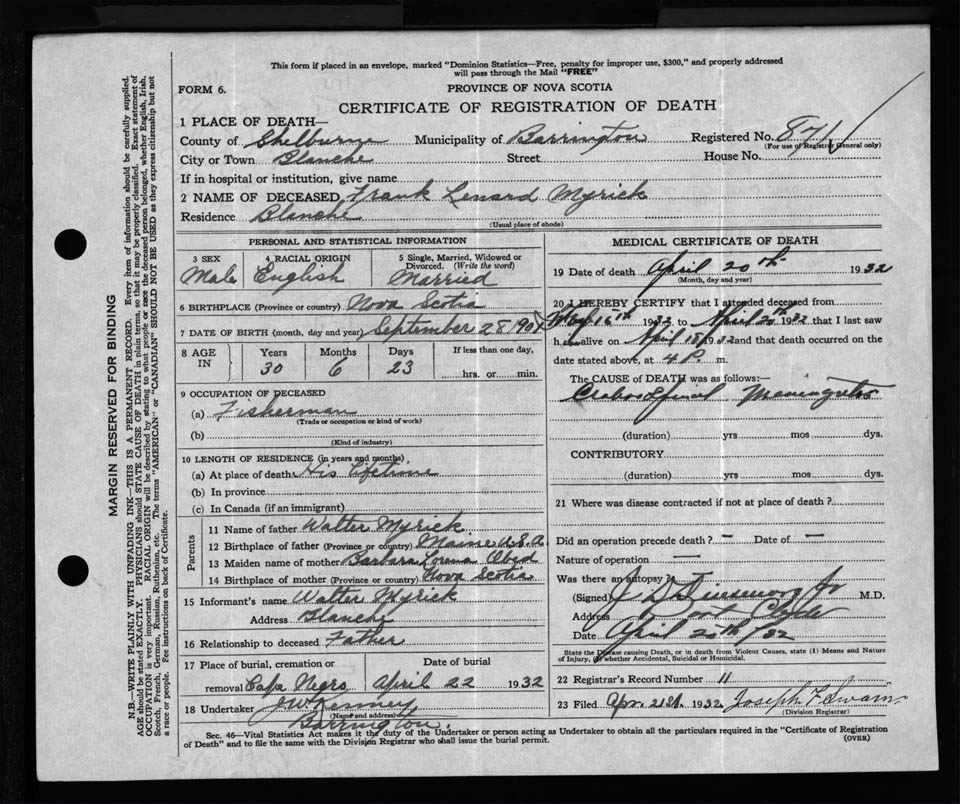 This form if placed in an envelope, marked "Dominion Statistics—Free, penalty for improper use, $300," and properly addressed
will pass through the Mail "FREE"
FORM 6.
PROVINCE OF NOVA SCOTIA
CERTIFICATE OF REGISTRATION OF DEATH
1 PLACE OF DEATH—
County of Shelburne Municipality of Barrington Registered No.
(For use of Registrar General only)
City or Town Blanche Street House No.
If in hospital or institution, give name
2 NAME OF DECEASED Frank Lenard Myrick
Residence Blanche
(Usual place of abode)
PERSONAL AND STATISTICAL INFORMATION
3 SEX 4 RACIAL ORIGIN 5 Single, Married, Widowed or Divorced. (Write the word)
Male English Married
6 BIRTHPLACE (Province or country) Nova Scotia
7 DATE OF BIRTH (month, day and year) September 28 1901
8 AGE IN Years Months Days If less than one day,
30 6 23 hrs. or min.
9 OCCUPATION OF DECEASED
(a) Fisherman
(Trade or occupation or kind of work)
(b)
(Kind of industry)
10 LENGTH OF RESIDENCE (in years and months)
(a) At place of death His Lifetime
(b) In province
(c) In Canada (if an immigrant)
Parents
11 Name of father Walter Myrick
12 Birthplace of father (Province or country) Maine U.S.A.
13 Maiden name of mother Barbara Lorena Obed
14 Birthplace of mother (Province or country) Nova Scotia
15 Informant's name Walter Myrick
Address Blanche
16 Relationship to deceased Father
17 Place of burial, cremation or Date of burial
removal Cape Negro April 22 1932
18 Undertaker J W Kenney
(Name and address)
Barrington.
MEDICAL CERTIFICATE OF DEATH
19 Date of death April 20th 1932
(Month, day and year)
20 I HEREBY CERTIFY that I attended deceased from
16th 1932 to April 20th 1932 that I last saw
h alive on April 18 1932 and that death occurred on the
date stated above, at 4 P. m.
The CAUSE of DEATH was as follows:—
Cerebrospinal Meningitis
(duration) yrs mos dys.
CONTRIBUTORY
(duration) yrs mos dys.
21 Where was disease contracted if not at place of death?
Did an operation precede death? — Date of —
Nature of operation —
Was there an autopsy?
(Signed) M.D.
Address Port Clyde
Date April 20th/32
State the Disease causing Death, or in death from Violent Causes, state (1) Means and Nature
of Injury, (2) whether Accidental, Suicidal or Homicidal.
22 Registrar's Record Number 11
23 Filed Apr. 21st. 1932 Joseph F Swain
(Division Registrar)
Sec. 46—Vital Statistics Act makes it the duty of the Undertaker or person acting as Undertaker to obtain all the particulars required in the "Certificate of Registration
of Death" and to file the same with the Division Registrar who shall issue the burial permit.
(OVER)
MARGIN RESERVED FOR BINDING
N.B.—WRITE PLAINLY WITH UNFADING INK—THIS IS A PERMANENT RECORD. Every item of information should be carefully supplied.
AGE should be stated EXACTLY. PHYSICIANS should STATE CAUSE OF DEATH in plain terms, so that it may be properly classified. Exact statement of
OCCUPATION is very important. RACIAL ORIGIN will be described by stating to what people or race the deceased person belonged, whether English, Irish,
Scotch, French, German, Russian, Ruthenian, etc. The terms "AMERICAN" or "CANADIAN" SHOULD NOT BE USED as they express citizenship but not
a race or people. Fee instructions on back of Certificate.